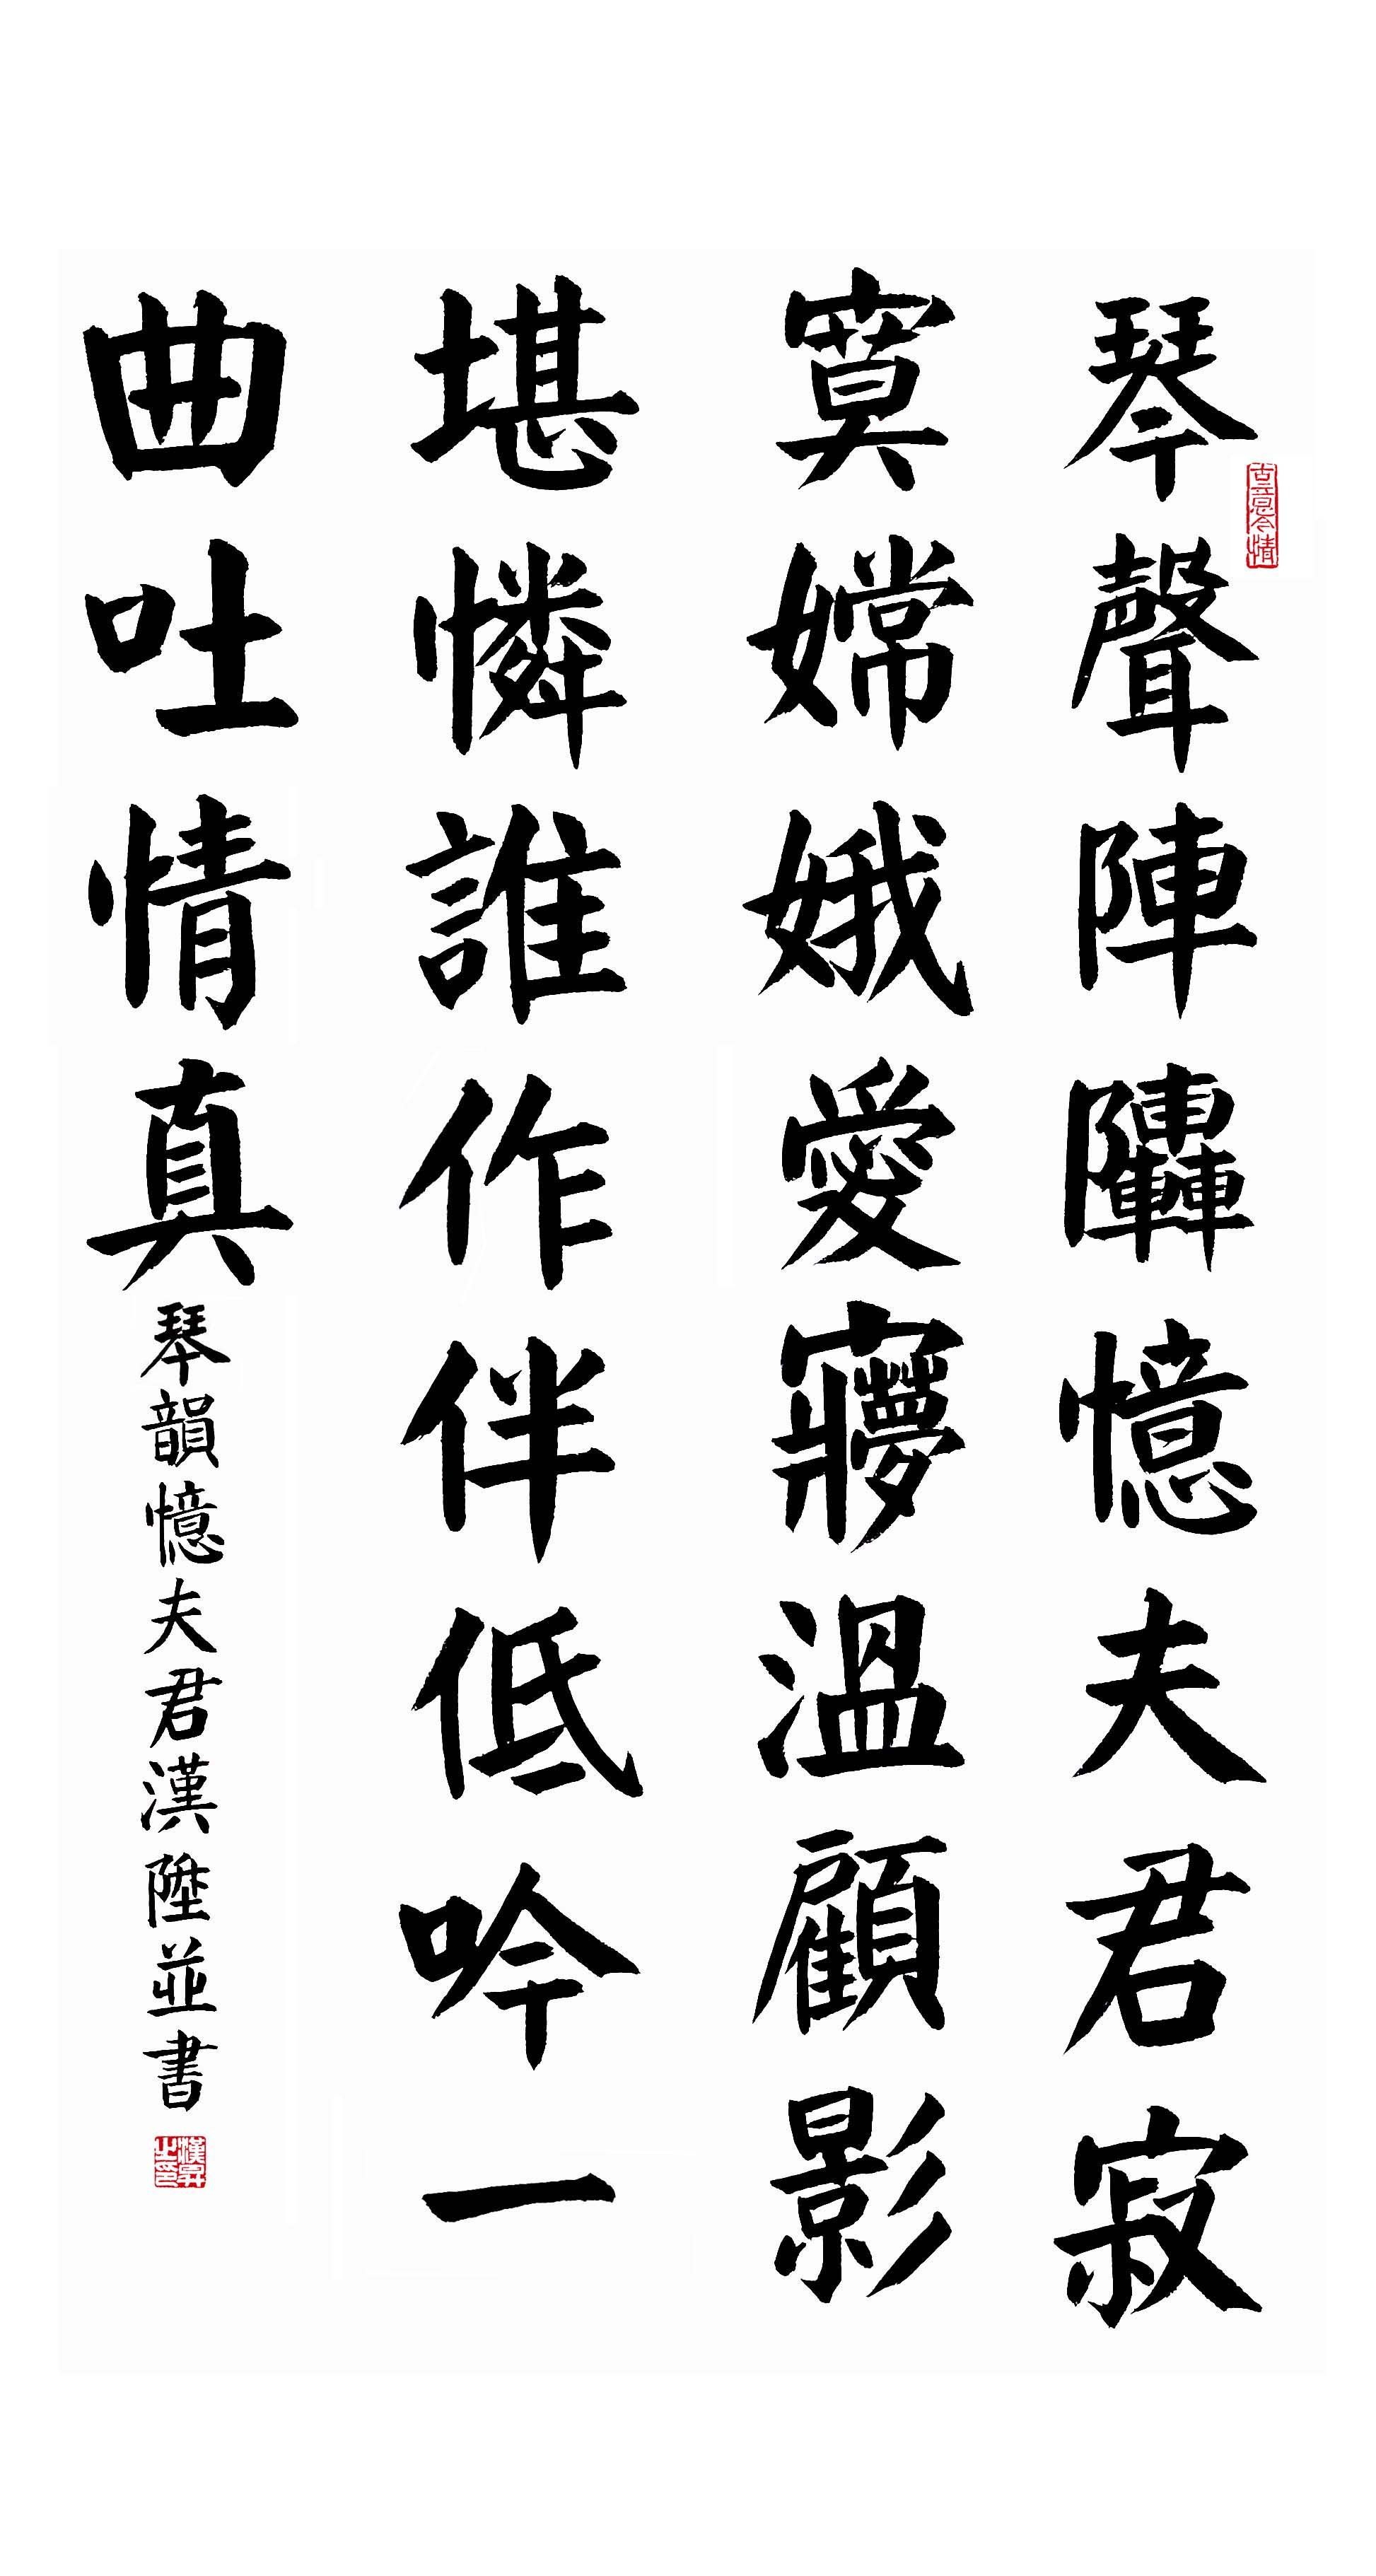 古意今情
琴聲陣陣憶夫君寂
寞嫦娥愛㝱溫顧影
堪憐誰作伴低吟一
曲吐情真
琴韻憶夫君漢陞並書
漢昇之印